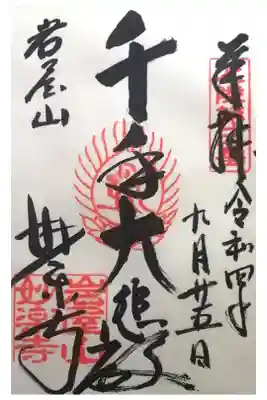 奉拝
令和四年
九月廿五日
千手大悲殿
岩屋山
妙楽寺